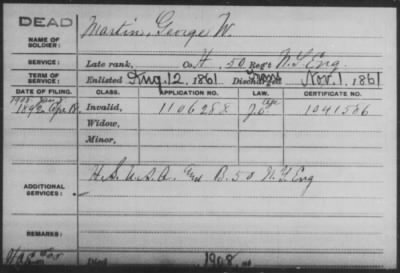 DEAD
NAME OF SOLDIER: Martin, George W.
SERVICE: Late rank, Co. H, 50 Reg't N.Y. Eng.
TERM OF SERVICE: Enlisted Aug. 12, 1861 Discharged Nov. 1, 1861
DATE OF FILING. CLASS. APPLICATION NO. LAW. CERTIFICATE NO.
1892 Apr Invalid, 1106288 1041586
Widow,
Minor,
ADDITIONAL SERVICES: H. S. U.S.A. and B. 50 N.Y. Eng
REMARKS:
Died 1908, at